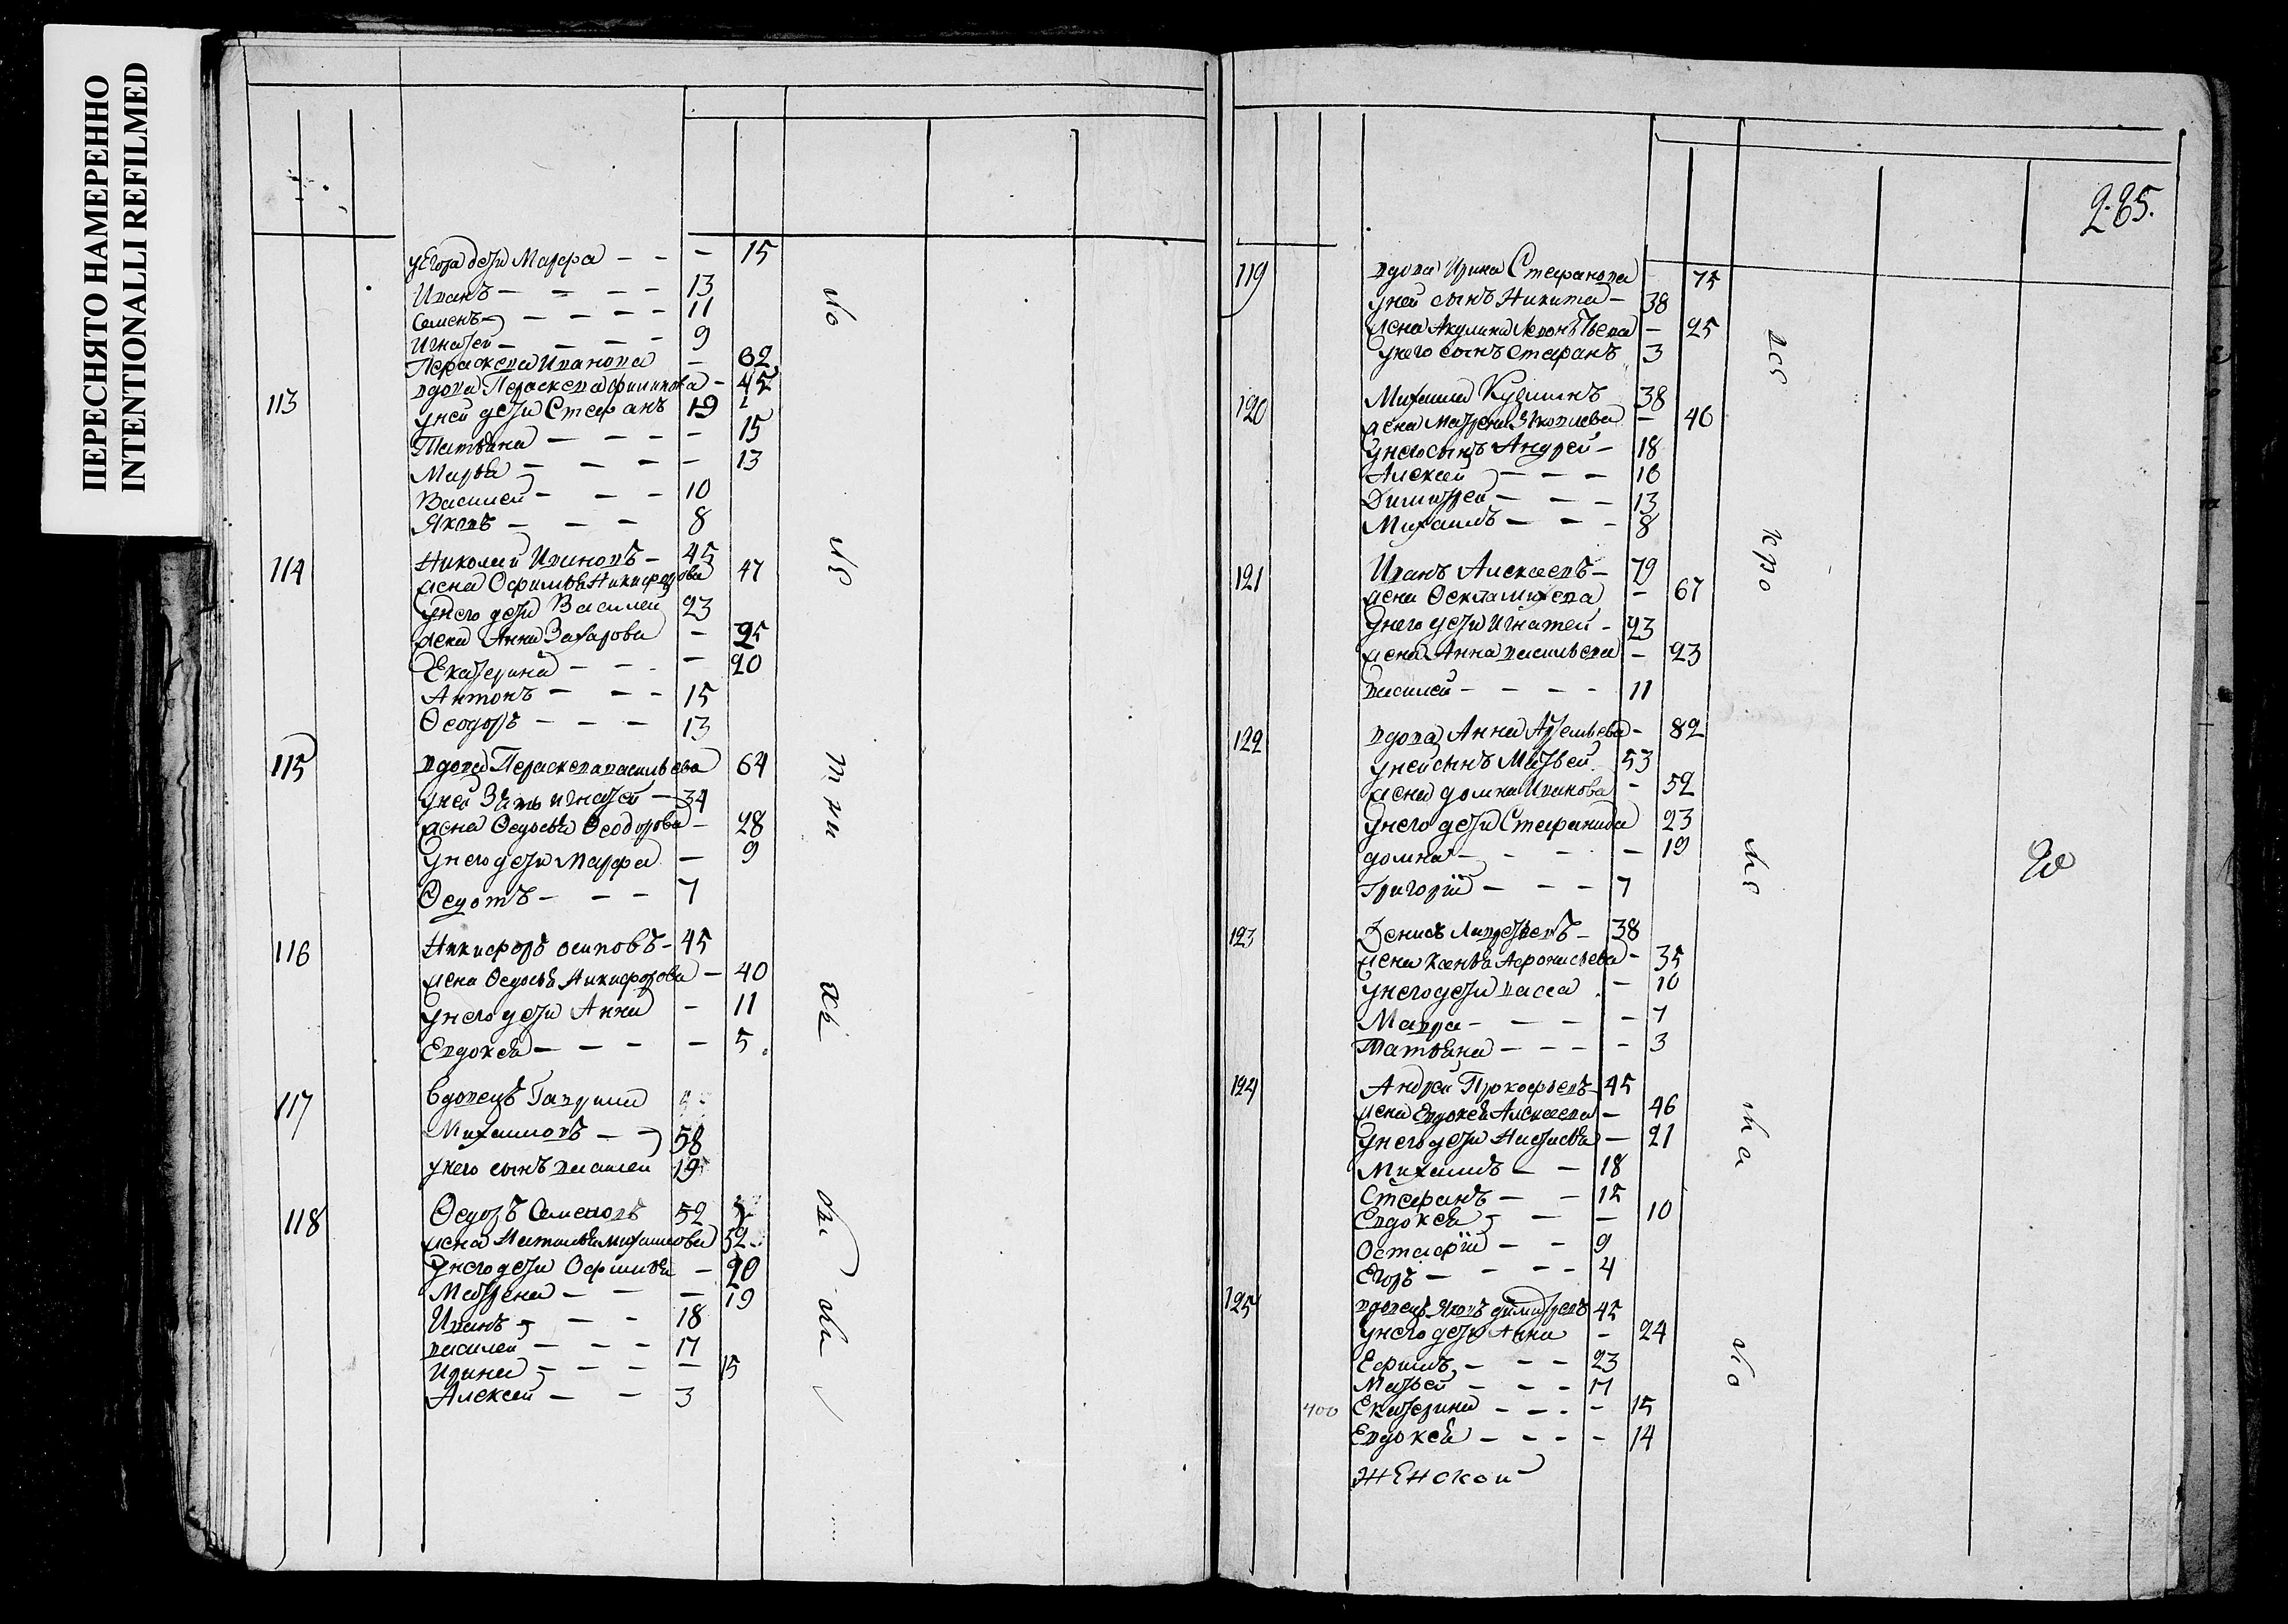 ПЕРЕСНЯТО НАМЕРЕННО
INTENTIONALLI REFILMED
у Егора дети Марфа - - - 15
Иванъ - - - - 13
Семенъ - - - - 11
Игнатей - - - - 9
Пераскева Иванова - 62
113 вдова Пераскева филипова - 45
у ней дети Стефанъ 19
Татьяна - - - - 15
Марья - - - - 13
Василей - - - 10
Яковъ - - - 8
114 Николай Ивановъ - 45
жена Офимья Никифорова 47
у него дети Василей 23
жена Анна Захарова - 25
Екатерина - - - 20
Антонъ - - - 15
Ѳеодоръ - - - 13
115 вдова Пераскева васильева 64
у ней Зять игнатей - 34
жена Ѳедосья Ѳеодорова - 28
у него дети Марфа - 9
Ѳедотъ - - - 7
116 Никифоръ осиповъ - 45
жена Ѳедосья Никифорова - 40
у него дети Анна - 11
Евдокея - - - - 5
117 вдовецъ Гаврила
Михаиловъ - - 58
у него сынъ василей 19
118 Ѳедоръ Семеновъ 52
жена Наталья михаилова 52
у него дети Офимья - 20
Матрена - - - 19
Иванъ - - - 18
василей - - - 17
Ирина - - - - 15
Алексей - - 3
285.
119 вдова Ирина Стефанова 75
у ней сынъ Никита - 38
жена Акулина Леонтьева - 25
у него сынъ Стефанъ 3
120 Михаила Кузминъ 38
жена Матрена - 40
у него сынъ Андрей - 18
Алексей - - - 16
Димитрей - - - 13
Михаилъ - - - 8
121 Иванъ Алексеевъ - 79
жена Ѳекла - 67
у него дети Игнатей - 23
жена Анна васильева - 23
василей - - - - 11
122 вдова Анна Артемьева - 82
у ней сынъ Матвей 53
жена домна Иванова - 52
у него дети Стефанида 23
домна - - - - 19
Григорїй - - - 7
123 Денисъ - 38
жена Ксенья Афонасьева - 35
у него дети васса - 10
Мавра - - - - 7
Татьяна - - - - 3
124 Андрей Прокофьевъ - 45
жена Евдокея Алексеева - 46
у него дети Настасья - 21
Михаилъ - - 18
Стефанъ - - 12
Евдокея - - - 10
Остафїй - - 9
Егоръ - - - - 4
125 вдовецъ Яковъ димитревъ 45
у него дети Анна - 24
Ефимъ - - - 23
Матвей - - - 17
400 Екатерина - - - - 15
Евдокея - - - - 14
женской